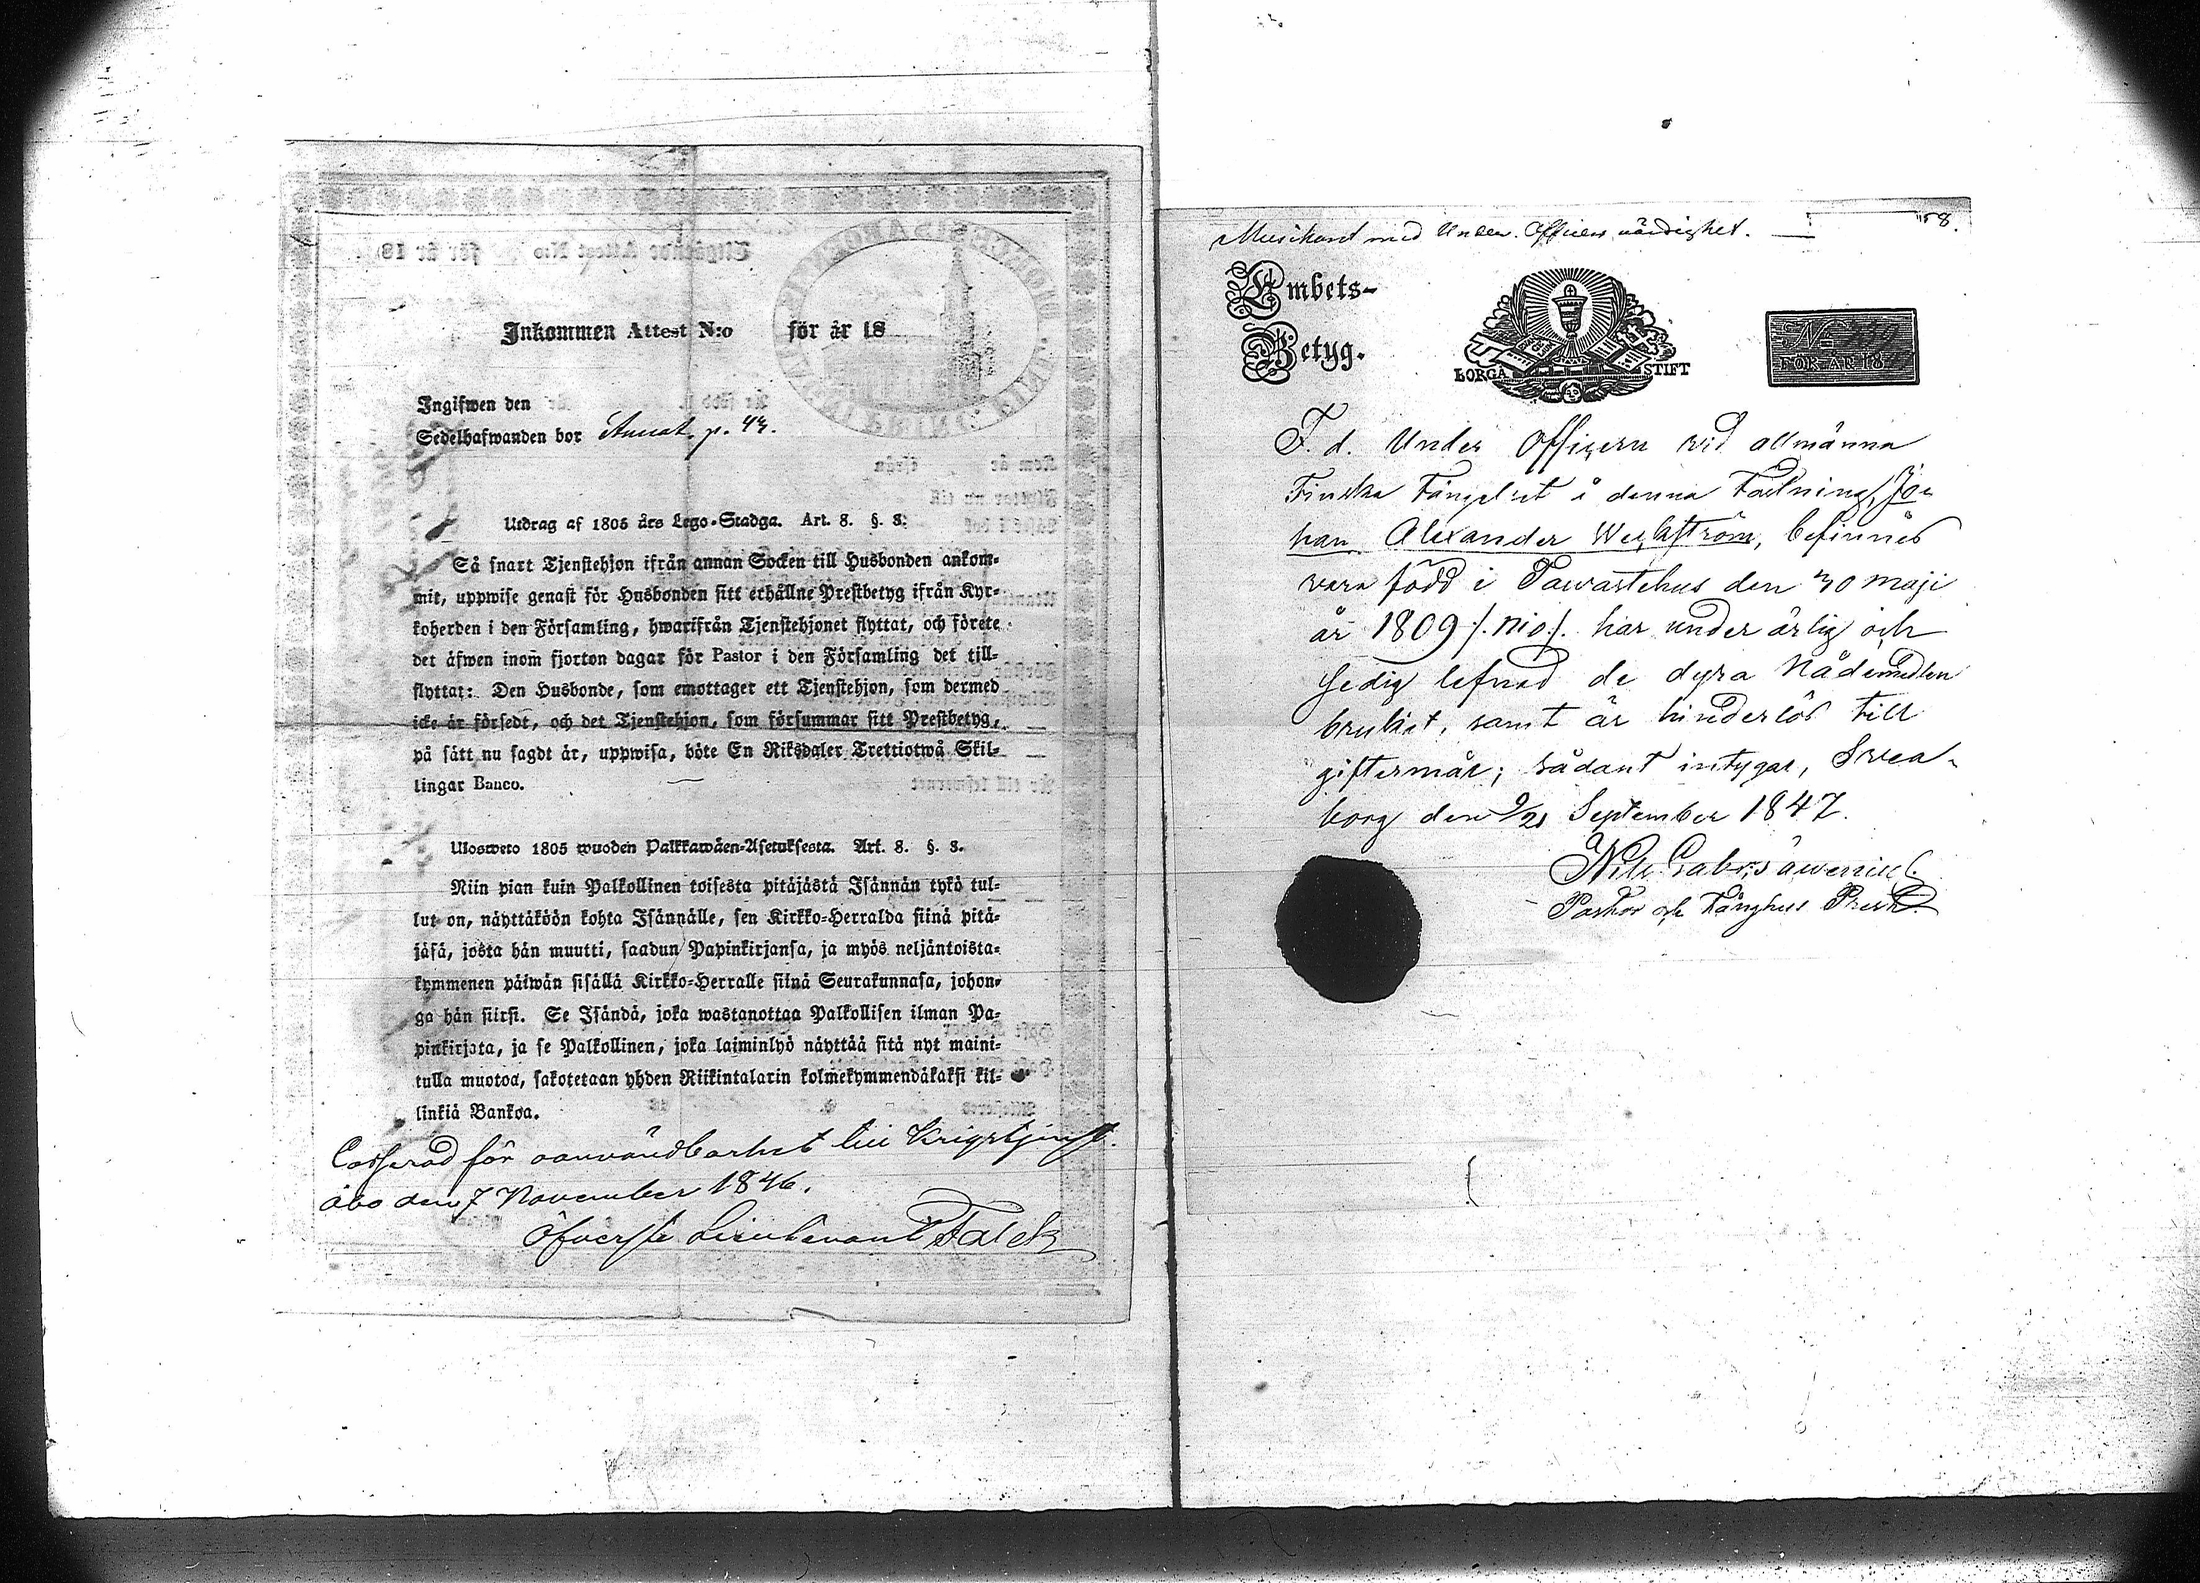 Inkommen Attest N:o för år 18
Ingifwen den
Sedelhafwanden bor Annot. p. 43.
Utdrag af 1805 års Lego-Stadga. Art. 8. §. 8.
Så snart Tjenstehjon ifrån annan Socken till Husbonden ankom-
mit, uppwise genast för Husbonden sitt erhållne Prestbetyg ifrån Kyr-
koherden i den Församling, hwarifrån Tjenstehjonet flyttat, och förete
det äfwen inom fjorton dagar för Pastor i den Församling det till-
flyttat: Den Husbonde, som emottager ett Tjenstehjon, som dermed
icke är försedt, och det Tjenstehjon, som försummar sitt Prestbetyg,
på sätt nu sagdt är, uppwisa, böte En Riksdaler Trettiotwå Skil-
lingar Banco.
Ulosweto 1805 wuoden Palkkawäen-Asetuksesta. Art. 8. §. 8.
Niin pian kuin Palkollinen toisesta pitäjästä Isännän tykö tul-
lut on, näyttäköön kohta Isännälle, sen Kirkko-Herralda siinä pitä-
jäsä, josta hän muutti, saadun Papinkirjansa, ja myös neljäntoista-
kymmenen päiwän sisällä Kirkko-Herralle siinä Seurakunnasa, johon-
ga hän siirsi. Se Isändä, joka wastanottaa Palkollisen ilman Pa-
pinkirjata, ja se Palkollinen, joka laiminlyö näyttää sitä nyt maini-
tulla muotoa, sakotetaan yhden Riikintalarin kolmekymmendäkaksi kil-
linkiä Bankoa.
Casserad för oanvändbarhet till Krigstjenst.
Åbo den 7 November 1846.
Öfverste Lieutenant Falck
Musikant med Under-Officers värdighet. 58.
Embets-
Betyg.
BORGÅ STIFT
N:o
FÖR ÅR 18
F. d. Under Officern vid allmänna
Finska Fängelset i denna Fästning, Jo-
han Alexander Weckström, befinnes
vara född i Tawastehus den 30 Maji
år 1809 /. nio /. har under ärlig och
sedig lefnad de dyra Nådemedlen
brukat, samt är hinderlös till
giftermål; sådant intygar, Swea-
borg den 9/21 September 1847.
Nils Gabr.
Pastor och Fånghus Prest.